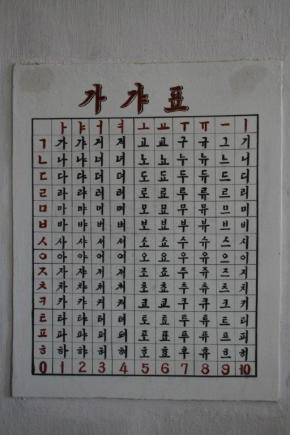 가 갸 표
ㅏ ㅑ ㅓ ㅕ ㅗ ㅛ ㅜ ㅠ ㅡ ㅣ
ㄱ 가 갸 거 겨 고 교 구 규 그 기
ㄴ 나 냐 너 녀 노 뇨 누 뉴 느 니
ㄷ 다 댜 더 뎌 도 됴 두 듀 드 디
ㄹ 라 랴 러 려 로 료 루 류 르 리
ㅁ 마 먀 머 며 모 묘 무 뮤 므 미
ㅂ 바 뱌 버 벼 보 뵤 부 뷰 브 비
ㅅ 사 샤 서 셔 소 쇼 수 슈 스 시
ㅇ 아 야 어 여 오 요 우 유 으 이
ㅈ 자 쟈 저 져 조 죠 주 쥬 즈 지
ㅊ 차 챠 처 쳐 초 쵸 추 츄 츠 치
ㅋ 카 캬 커 켜 코 쿄 쿠 큐 크 키
ㅌ 타 탸 터 텨 토 툐 투 튜 트 티
ㅍ 파 퍄 퍼 펴 포 표 푸 퓨 프 피
ㅎ 하 햐 허 혀 호 효 후 휴 흐 히
0 1 2 3 4 5 6 7 8 9 10